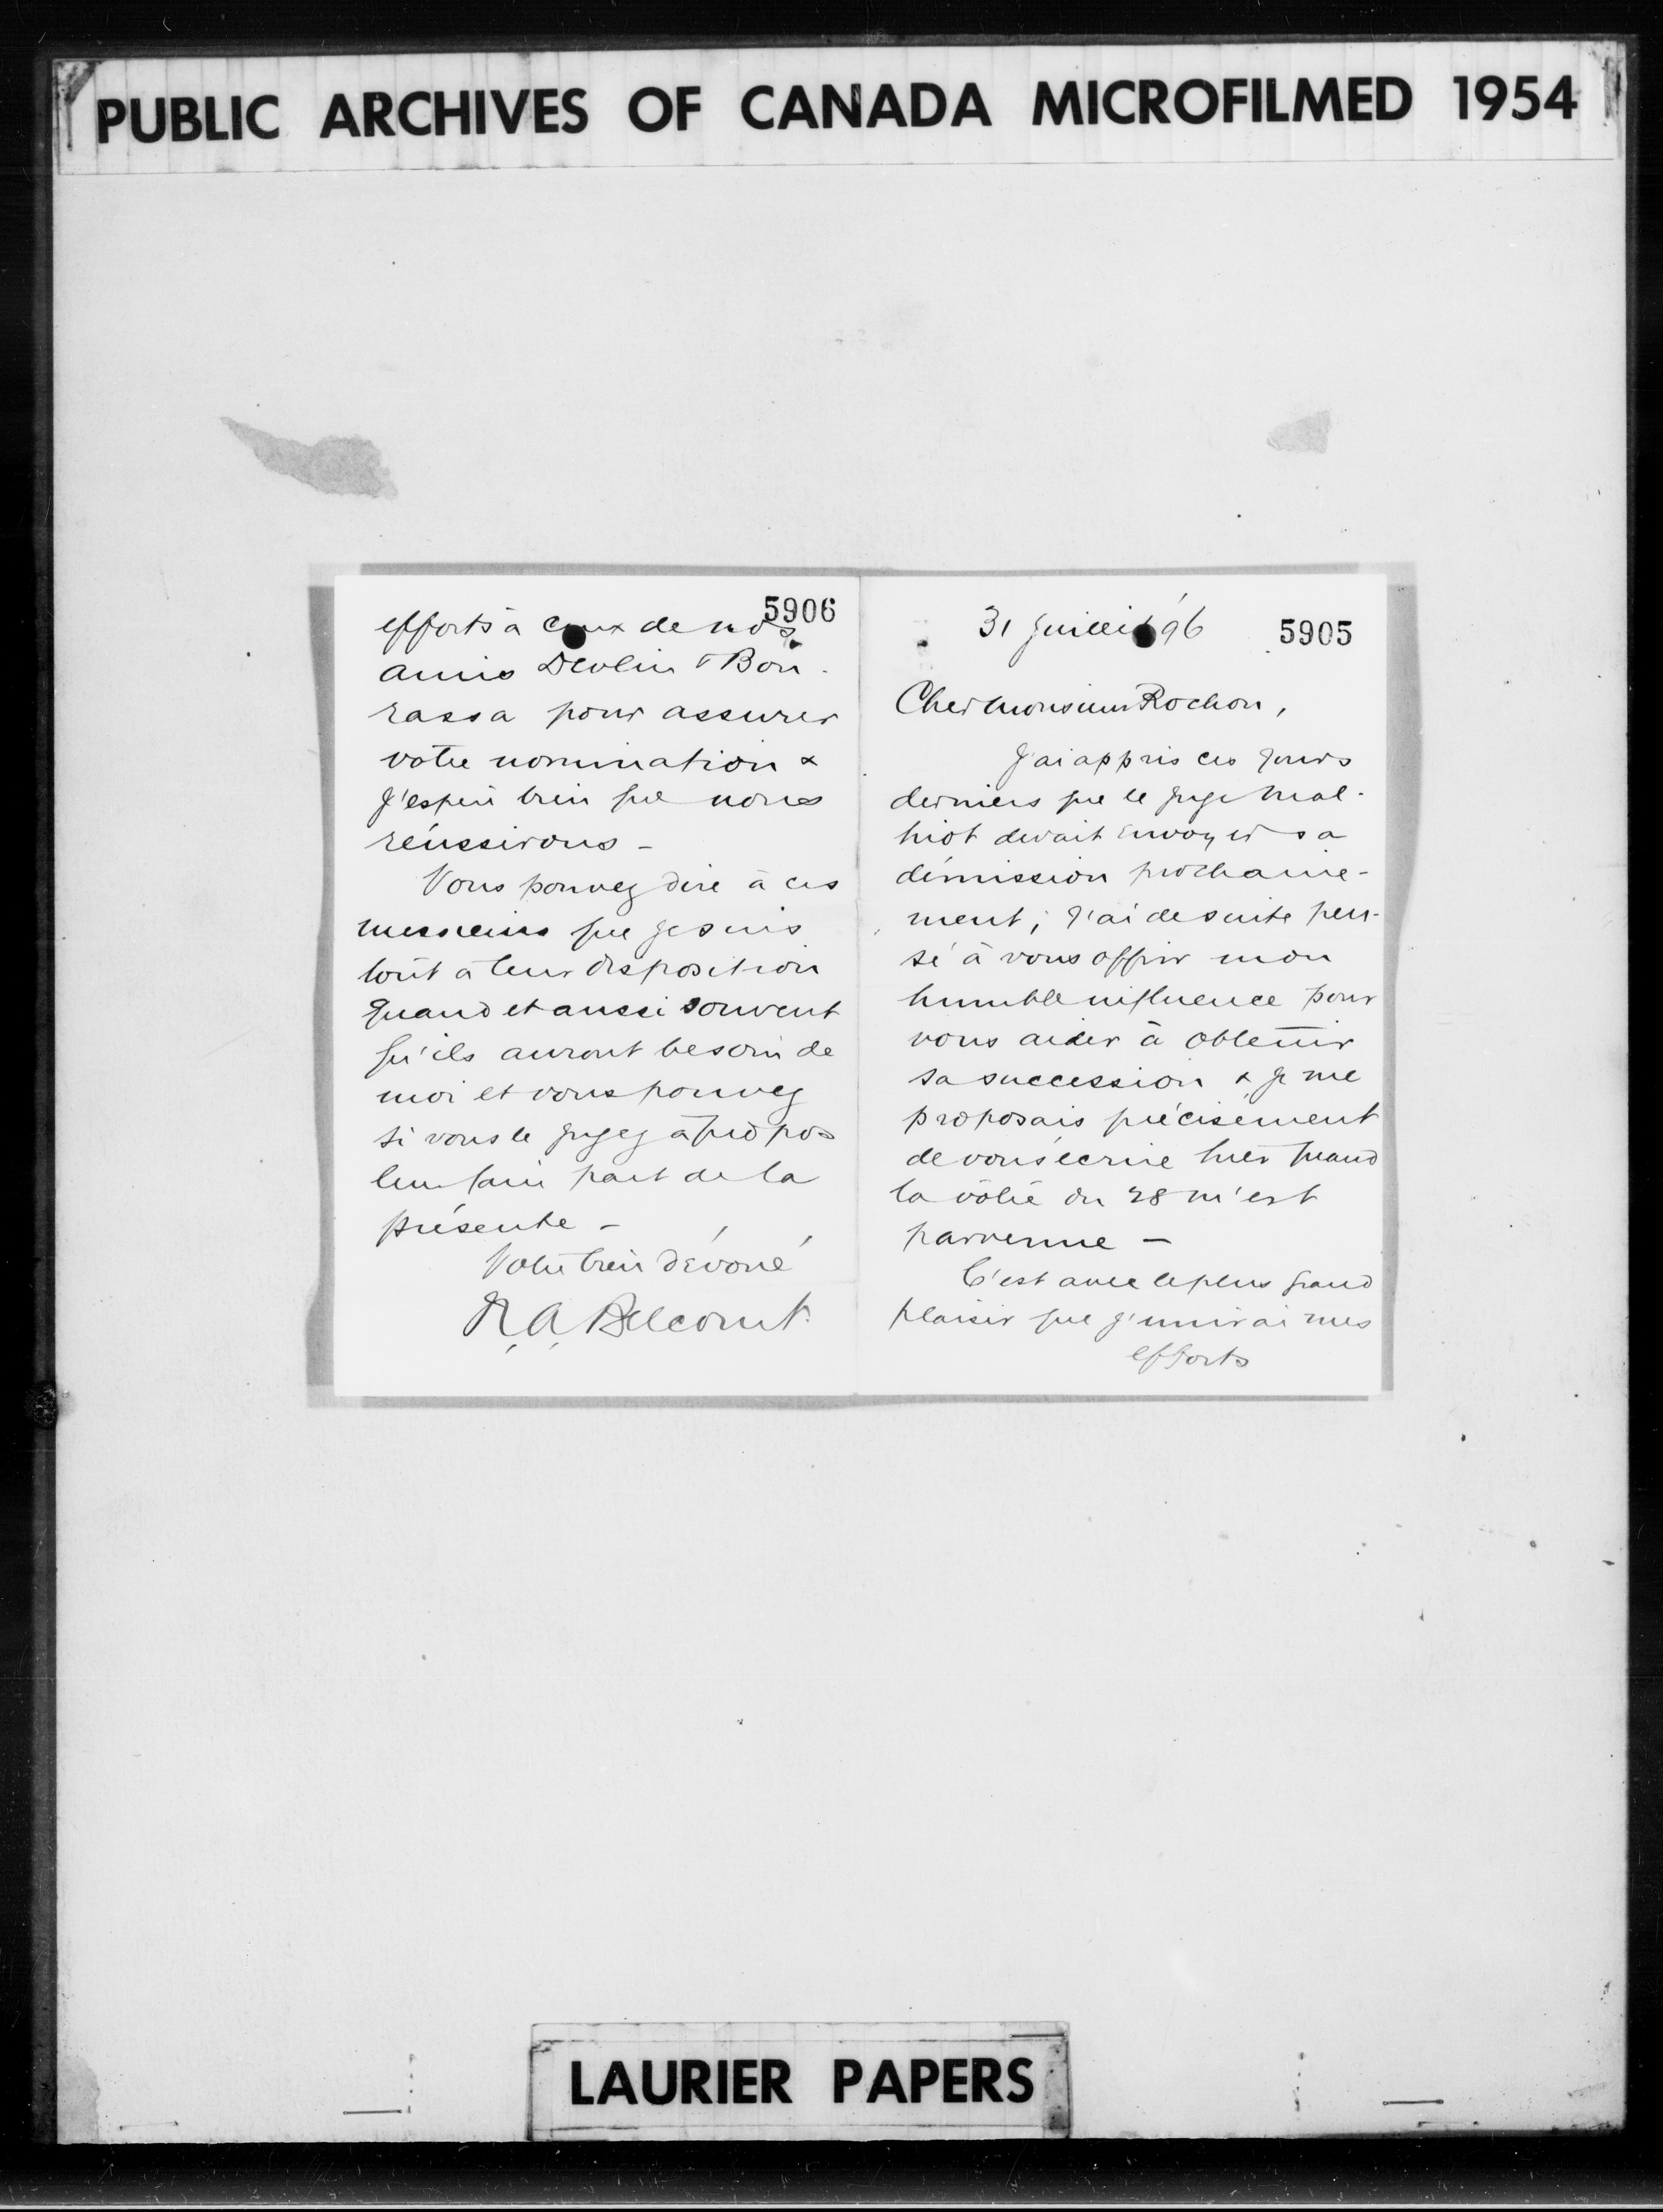 PUBLIC ARCHIVES OF CANADA MICROFILMED 1954
31 Juillet 96
5905
Cher Monsieur Rochon,
J'ai appris ces jours
derniers que le juge Mal-
hiot devait envoyer sa
démission prochaine-
ment; j'ai de suite pen-
sé à vous offrir mon
humble influence pour
vous aider à obtenir
sa succession & je me
proposais précisément
de vous écrire hier quand
la vôtre du 28 m'est
parvenue —
C'est avec le plus grand
plaisir que j'unirai mes
efforts
5906
efforts à ceux de nos
amis Devlin & Bou-
rassa pour assurer
votre nomination &
j'espère bien que nous
réussirons —
Vous pouvez dire à ces
messieurs que je suis
tout à leur disposition
quand et aussi souvent
qu'ils auront besoin de
moi et vous pouvez
si vous le jugez à propos
leur faire part de la
présente —
Votre bien dévoué
N. A. Belcourt.
LAURIER PAPERS